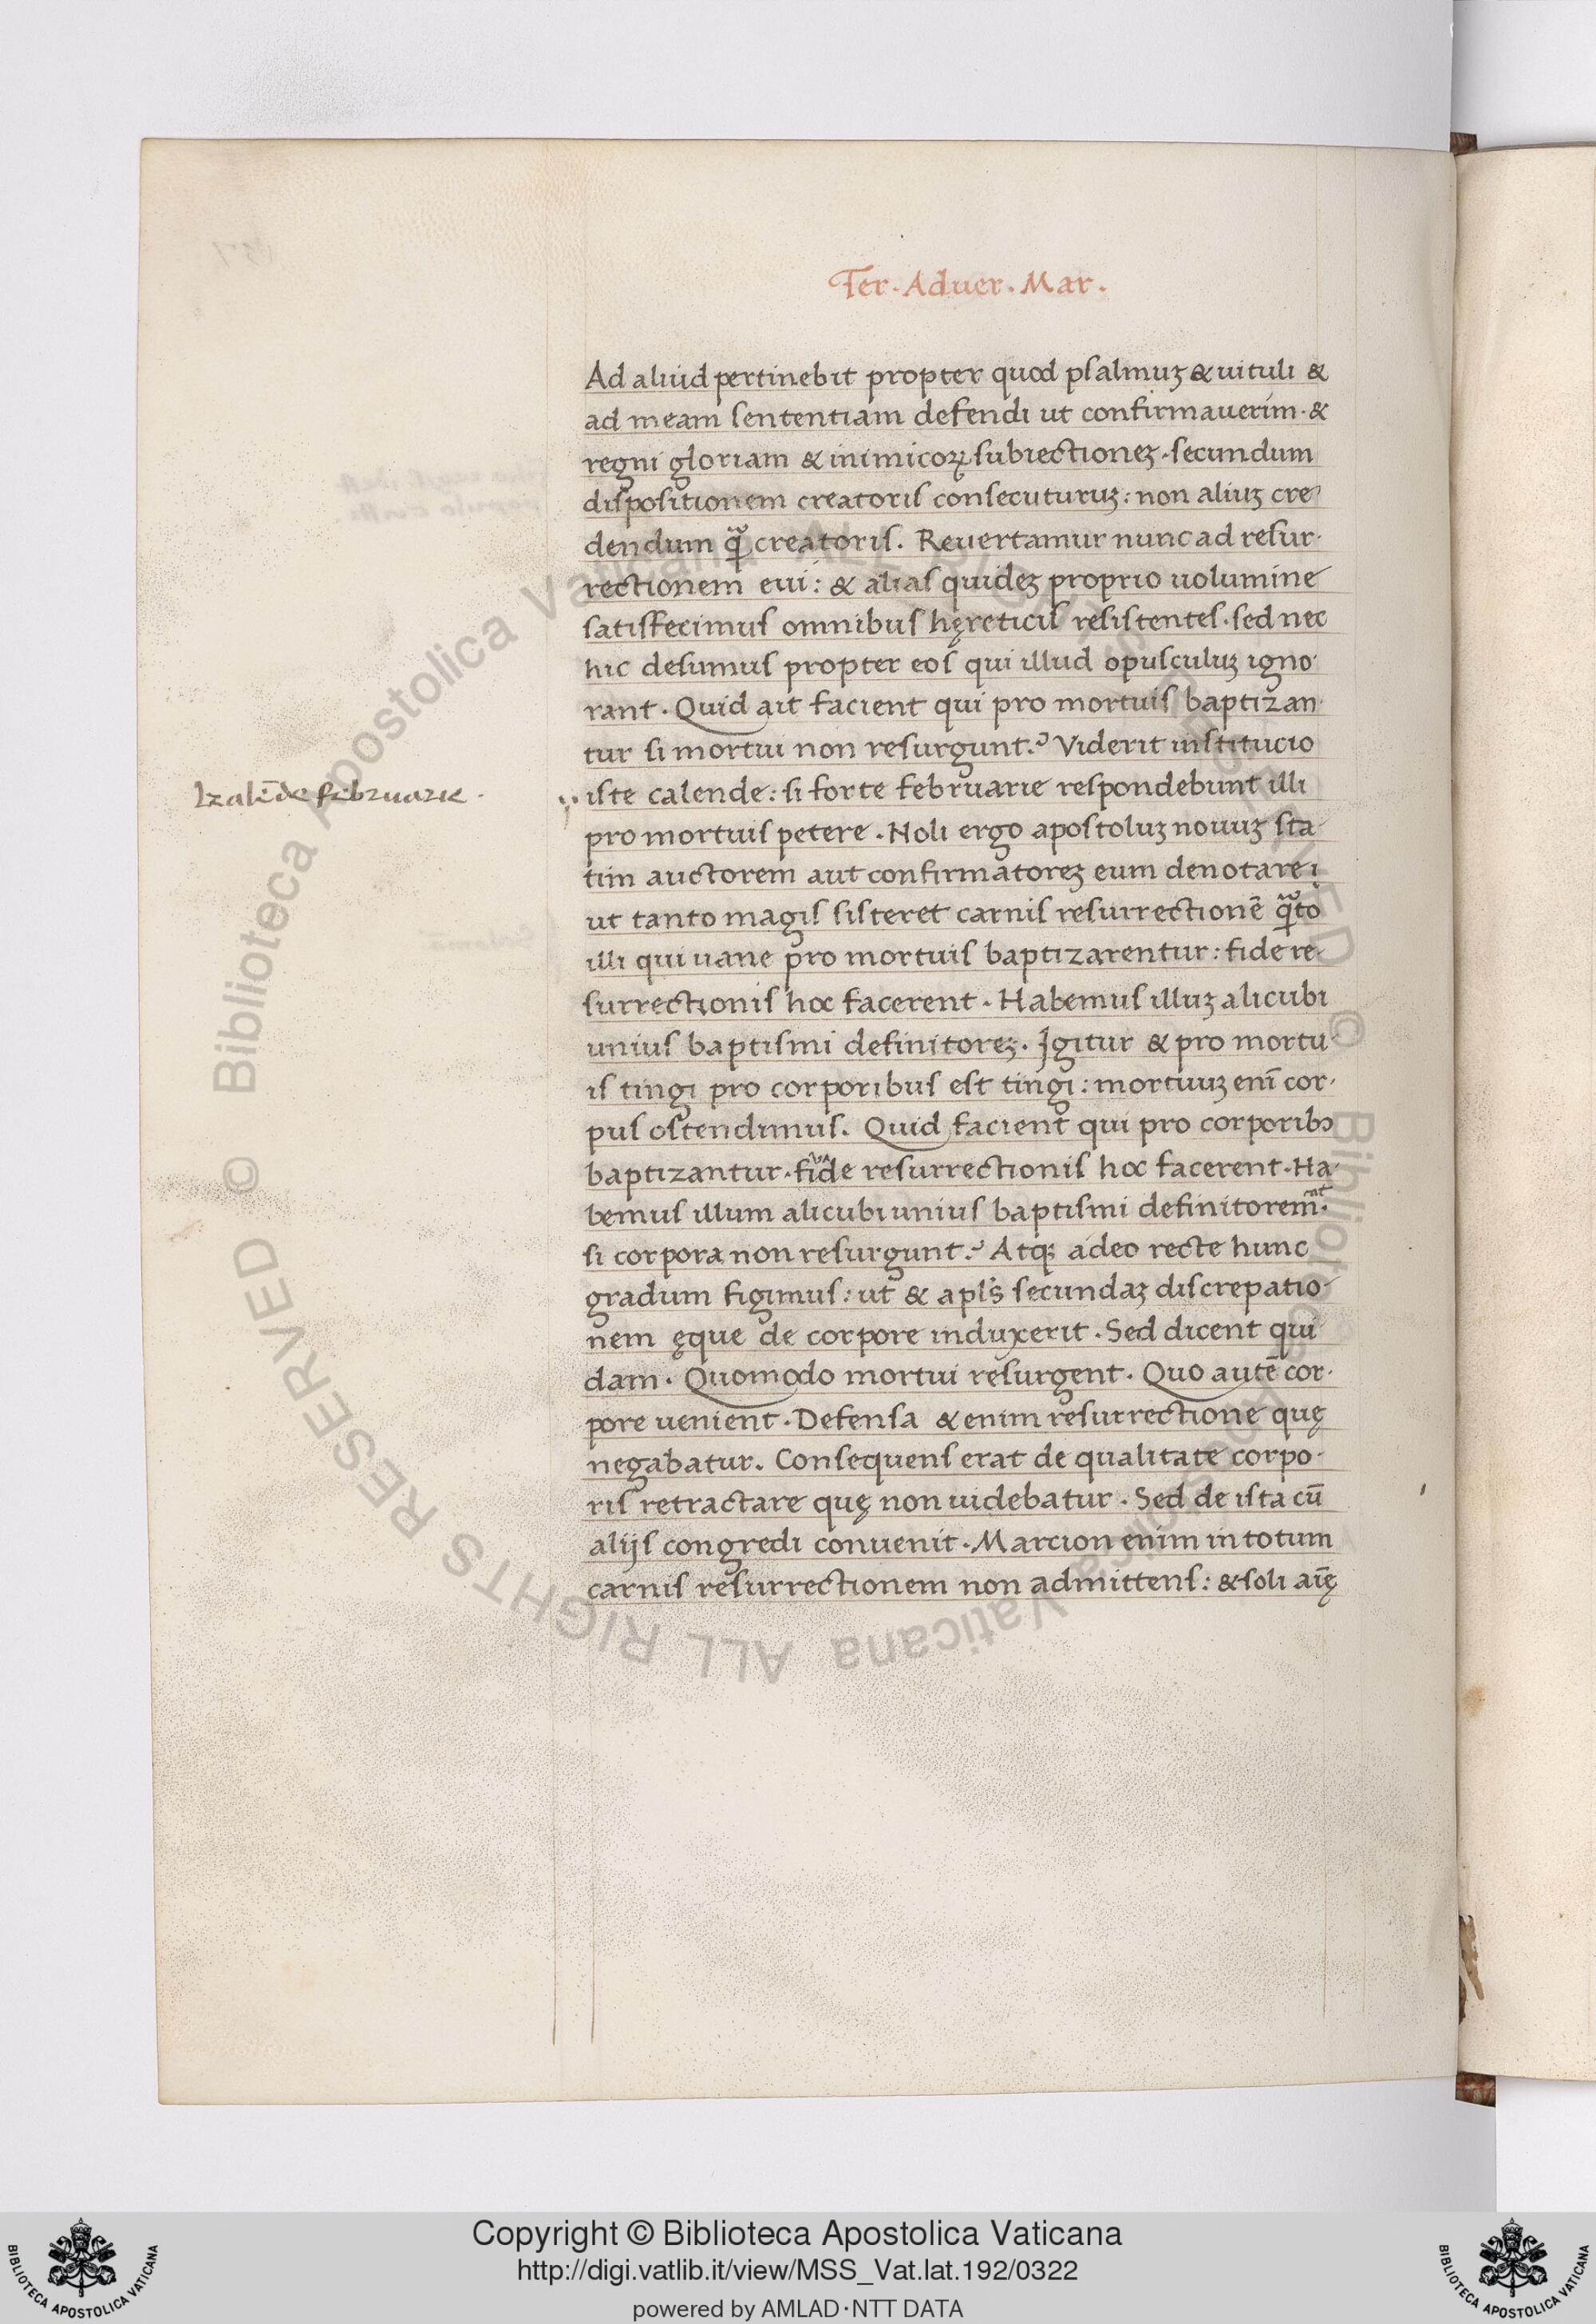 Ter. Aduer. Mar.
Ad aliud pertinebit propter quod psalmuꝫ & uituli &
ad meam sententiam defendi ut confirmauerim. &
regni gloriam & inimicoꝝ subiectioneꝫ. secundum
dispositionem creatoris consecuturuꝫ: non aliuꝫ cre
dendum qͣ̃ creatoris. Reuertamur nunc ad resur-
rectionem eui: & alias quideꝫ proprio uolumine
satisfecimus omnibus hęreticis resistentes. sed nec
hic desumus propter eos qui illud opusculuꝫ igno-
rant. Quid ait facient qui pro mortuis baptizan-
tur si mortui non resurgunt? Viderit institucio
iste calende: si forte februarie respondebunt illi
kalēde februarie.
pro mortuis petere. Noli ergo apostoluꝫ nouuꝫ sta-
tim auctorem aut confirmatoreꝫ eum denotare;
ut tanto magis sisteret carnis resurrectionē qͣ̃to
illi qui uane pro mortuis baptizarentur: fide re-
surrectionis hoc facerent. Habemus illuꝫ alicubi
unius baptismi definitoreꝫ. Igitur & pro mortu-
is tingi pro corporibus est tingi: mortuuꝫ eni̅ cor-
pus ostendimus. Quid facient qui pro corporibꝰ
baptizantur. ua fide resurrectionis hoc facerent. Ha-
bemus illum alicubi unius baptismi definitorem. at
si corpora non resurgunt? Atqꝫ adeo recte hunc
gradum figimus: ut & apl's secundaꝫ discrepatio-
nem ęque de corpore induxerit. Sed dicent qui
dam. Quomodo mortui resurgent. Quo autē cor-
pore uenient. Defensa & enim resurrectione quę
negabatur. Consequens erat de qualitate corpo-
ris retractare quę non uidebatur. Sed de ista cū
alijs congredi conuenit. Marcion enim in totum
carnis resurrectionem non admittens: & soli ai̅ę
BIBLIOTECA APOSTOLICA VATICANA
Copyright © Biblioteca Apostolica Vaticana
http://digi.vatlib.it/view/MSS_Vat.lat.192/0322
powered by AMLAD·NTT DATA
BIBLIOTECA APOSTOLICA VATICANA
© Biblioteca Apostolica Vaticana ALL RIGHTS RESERVED
© Biblioteca Apostolica Vaticana ALL RIGHTS RESERVED